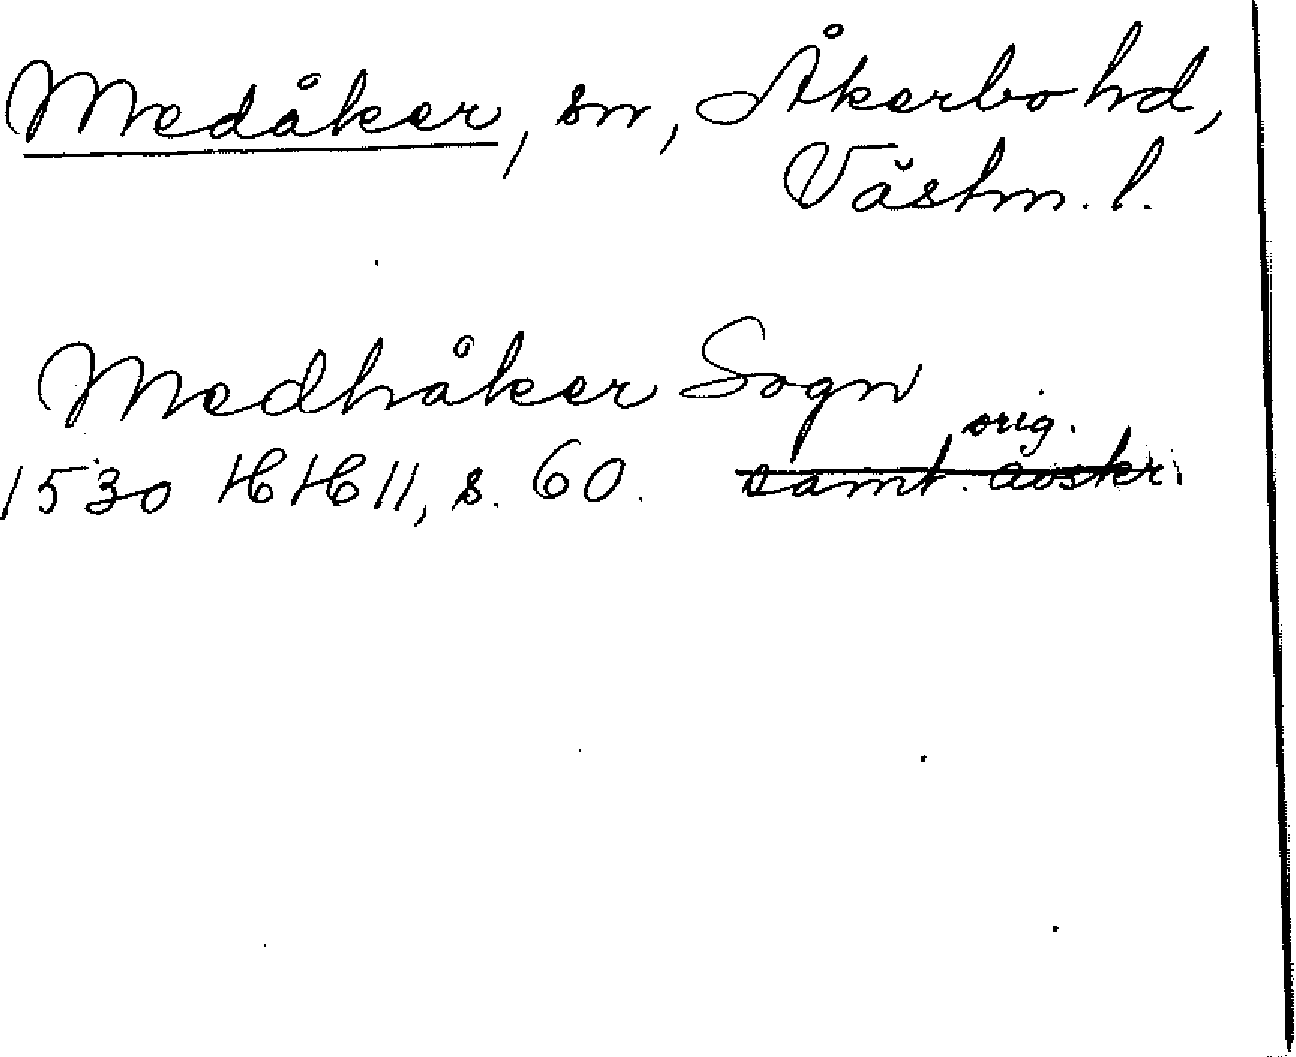 Medåker, sn, Åkerbo hd,
Västm. l.
Medhåker Sogn
orig.
1530 HH 11, s. 60. samt. avskr.